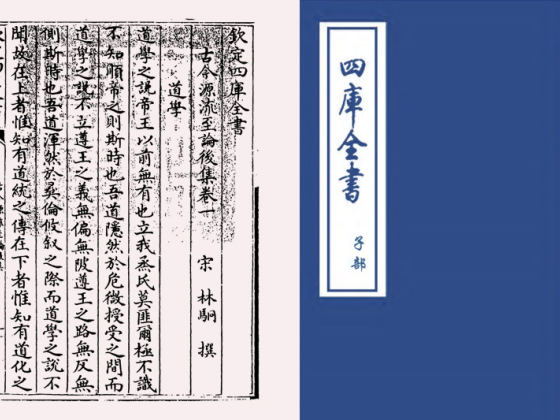 欽定四庫全書
古今源流至論後集卷一
宋 林駉 撰
道學
道學之說帝王以前無有也立我烝民莫匪爾極不識
不知順帝之則斯時也吾道隱然於危微授受之間而
道學之說不立遵王之義無偏無陂遵王之路無反無
側斯時也吾道渾然於彝倫攸叙之際而道學之說不
聞故在上者惟知有道統之傳在下者惟知有道化之
四庫全書
子部